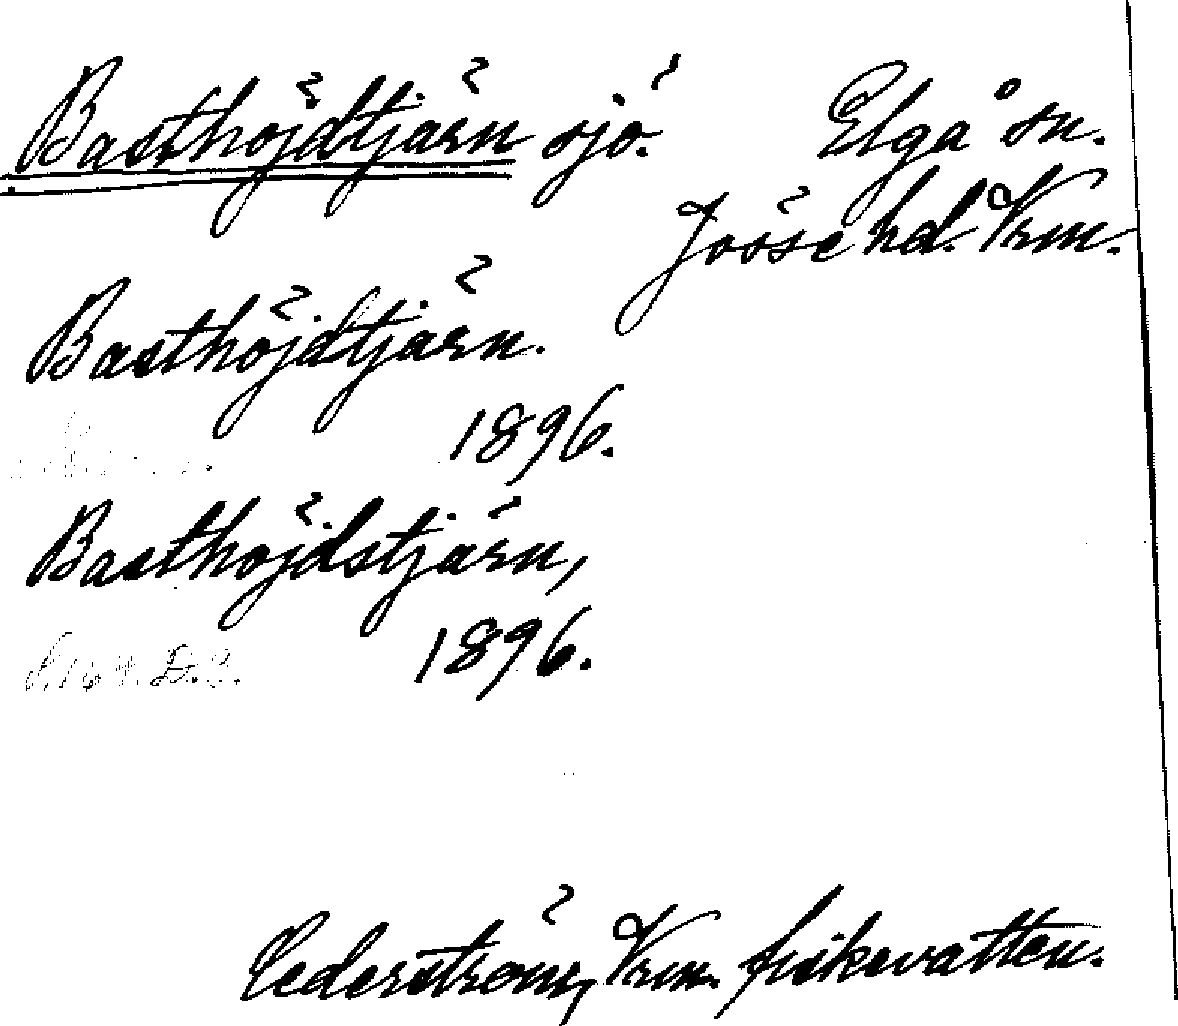 Basthöjdtjärn sjö. Elgå sn.
Jösse hd. Vrm.
Basthöjdtjärn.
1896.
Basthöjdstjärn,
1896.
Cederström, Vrm. fiskevatten.